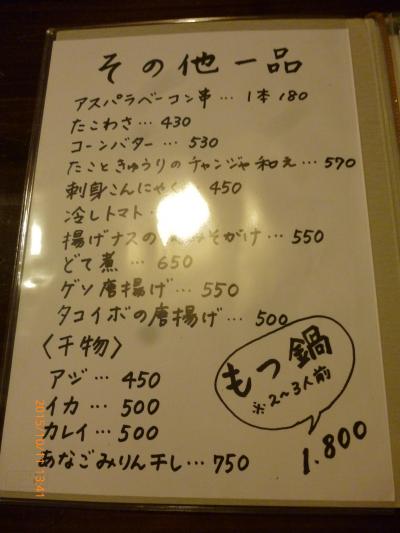 その他一品
アスパラベーコン串… 1本180
たこわさ… 430
コーンバター… 530
たこときゅうりのチャンジャ和え… 570
刺身こんにゃく 450
冷しトマト
揚げナスの みそがけ… 550
どて煮… 650
ゲソ唐揚げ… 550
タコイボの唐揚げ… 500
〈干物〉
アジ… 450
イカ… 500
カレイ… 500
あなごみりん干し… 750
もつ鍋
※2~3人前
1.800
2015/10/ 13:41